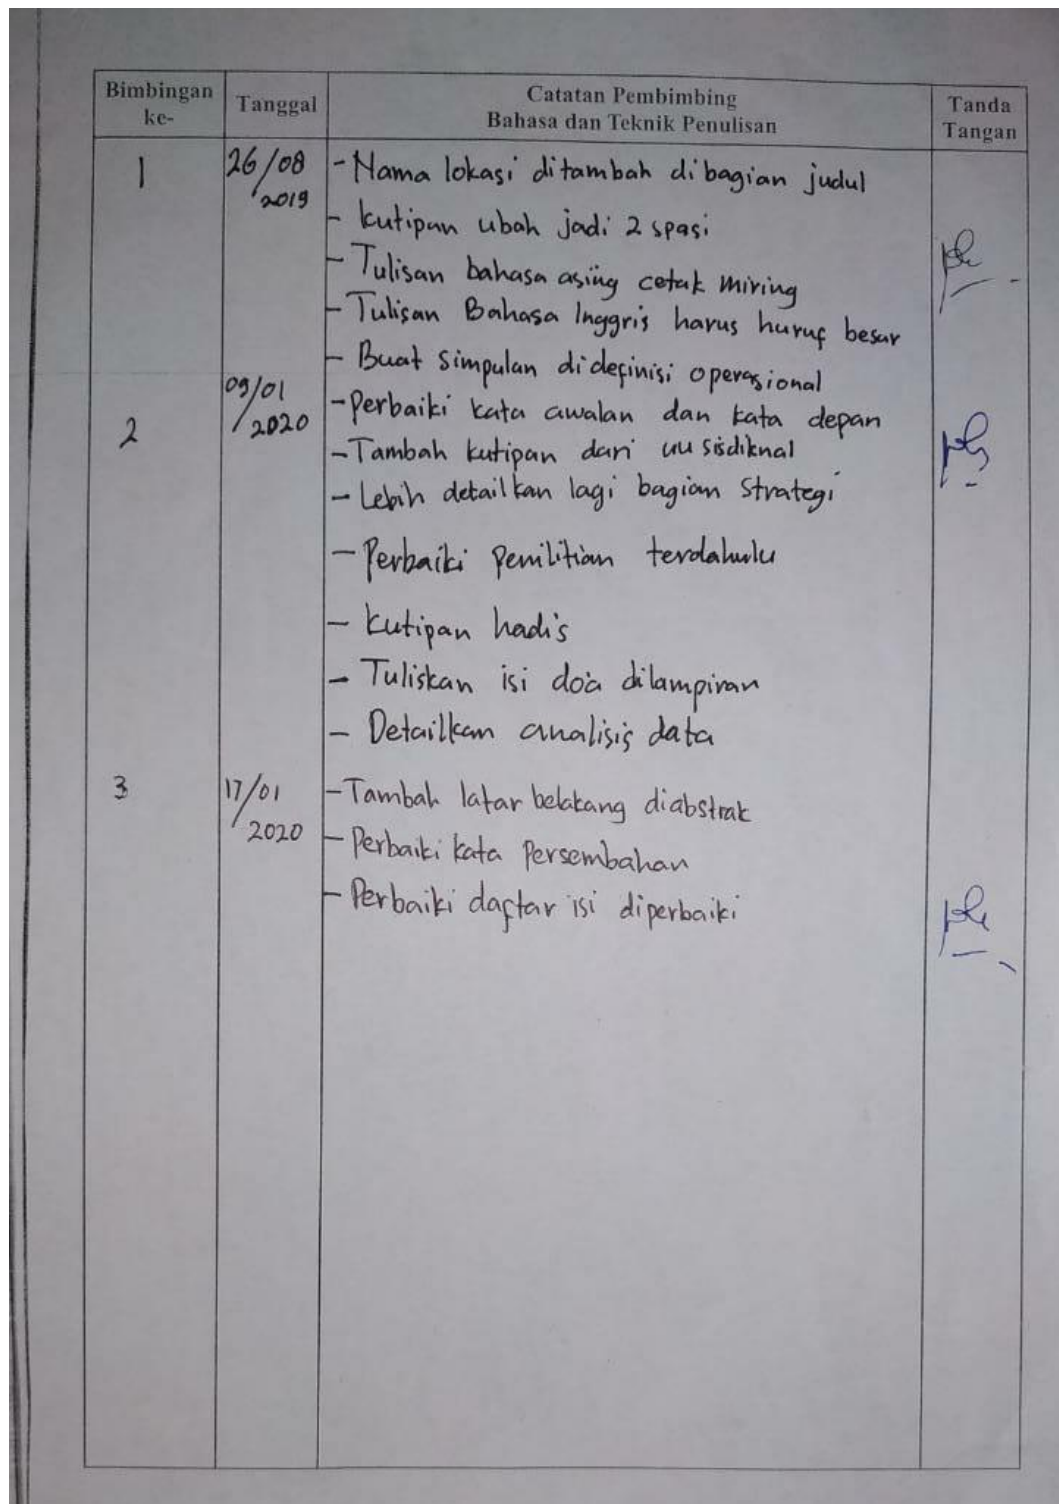 Bimbingan ke-
Tanggal
Catatan Pembimbing
Bahasa dan Teknik Penulisan
Tanda Tangan
1
26/08
2019
- Nama lokasi ditambah dibagian judul
- kutipan ubah jadi 2 spasi
- Tulisan bahasa asiing cetak miring
- Tulisan Bahasa Inggris harus huruf besar
- Buat simpulan didefinisi operasional
2
09/01
2020
- Perbaiki kata awalan dan kata depan
- Tambah kutipan dari uu sisdiknal
- Lebih detailkan lagi bagian Strategi
- Perbaiki Penilitian terdahulu
- kutipan hadis
- Tuliskan isi do'a dilampiran
- Detailkan analisis data
3
17/01
2020
- Tambah latar belakang diabstrak
- Perbaiki kata Persembahan
- Perbaiki daftar isi diperbaiki